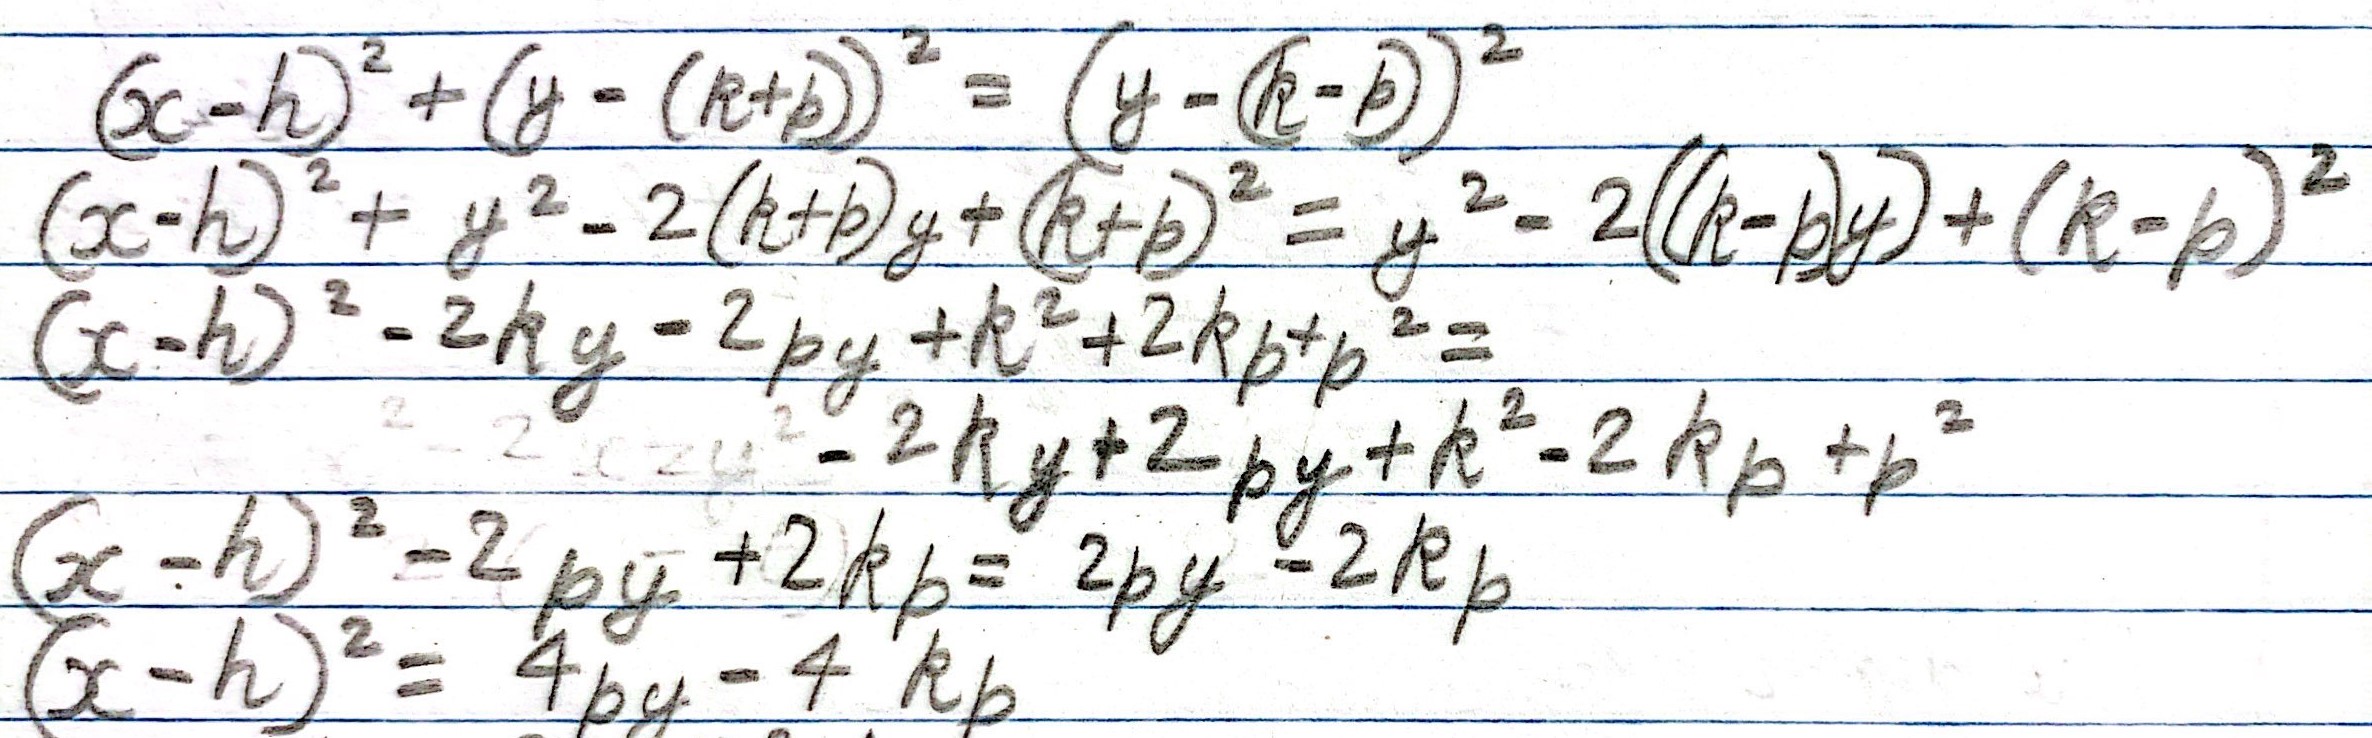 (x-h)² + (y - (k+p))² = (y - (k-p))²
(x-h)² + y² - 2(k+p)y + (k+p)² = y² - 2((k-p)y) + (k-p)²
(x-h)² - 2ky - 2py + k² + 2kp + p² =
- 2ky + 2py + k² - 2kp + p²
(x-h)² - 2py + 2kp = 2py - 2kp
(x-h)² = 4py - 4kp